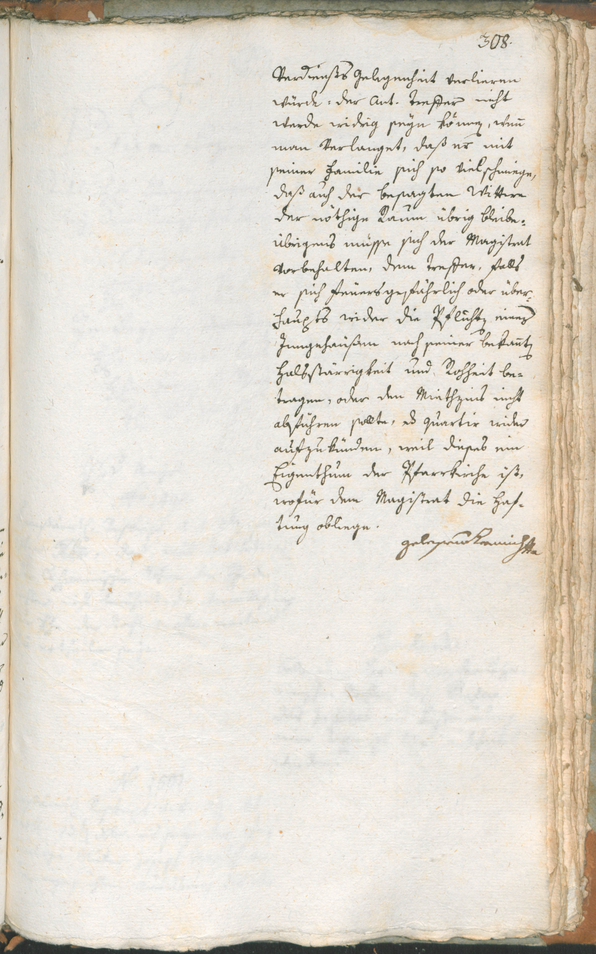 308.
Verdiensts Gelegenheit verlieren
würde. der Ant. Trester nicht
werde widrig seyn können, wenn
man Verlanget, daß er mit
seiner Familie sich so viel schmiege,
daß auch der besagten Wittwe
der nöthige Raum übrig bleibe.
übrigens müsse sich der Magistrat
Vorbehalten, dem Trester, falls
er sich feuersgefährlich oder über-
haupts wider die Pflicht eines
Inngehäußen nach seiner bekannten
Halsstärrigkeit und Rohheit be-
tragen, oder den Miethzins nicht
abführen sollte, das Quartir wider
aufzukünden, weil dieses ein
Eigenthum der Pfarrkirche ist,
wofür dem Magistrat die Haf-
tung obliege.